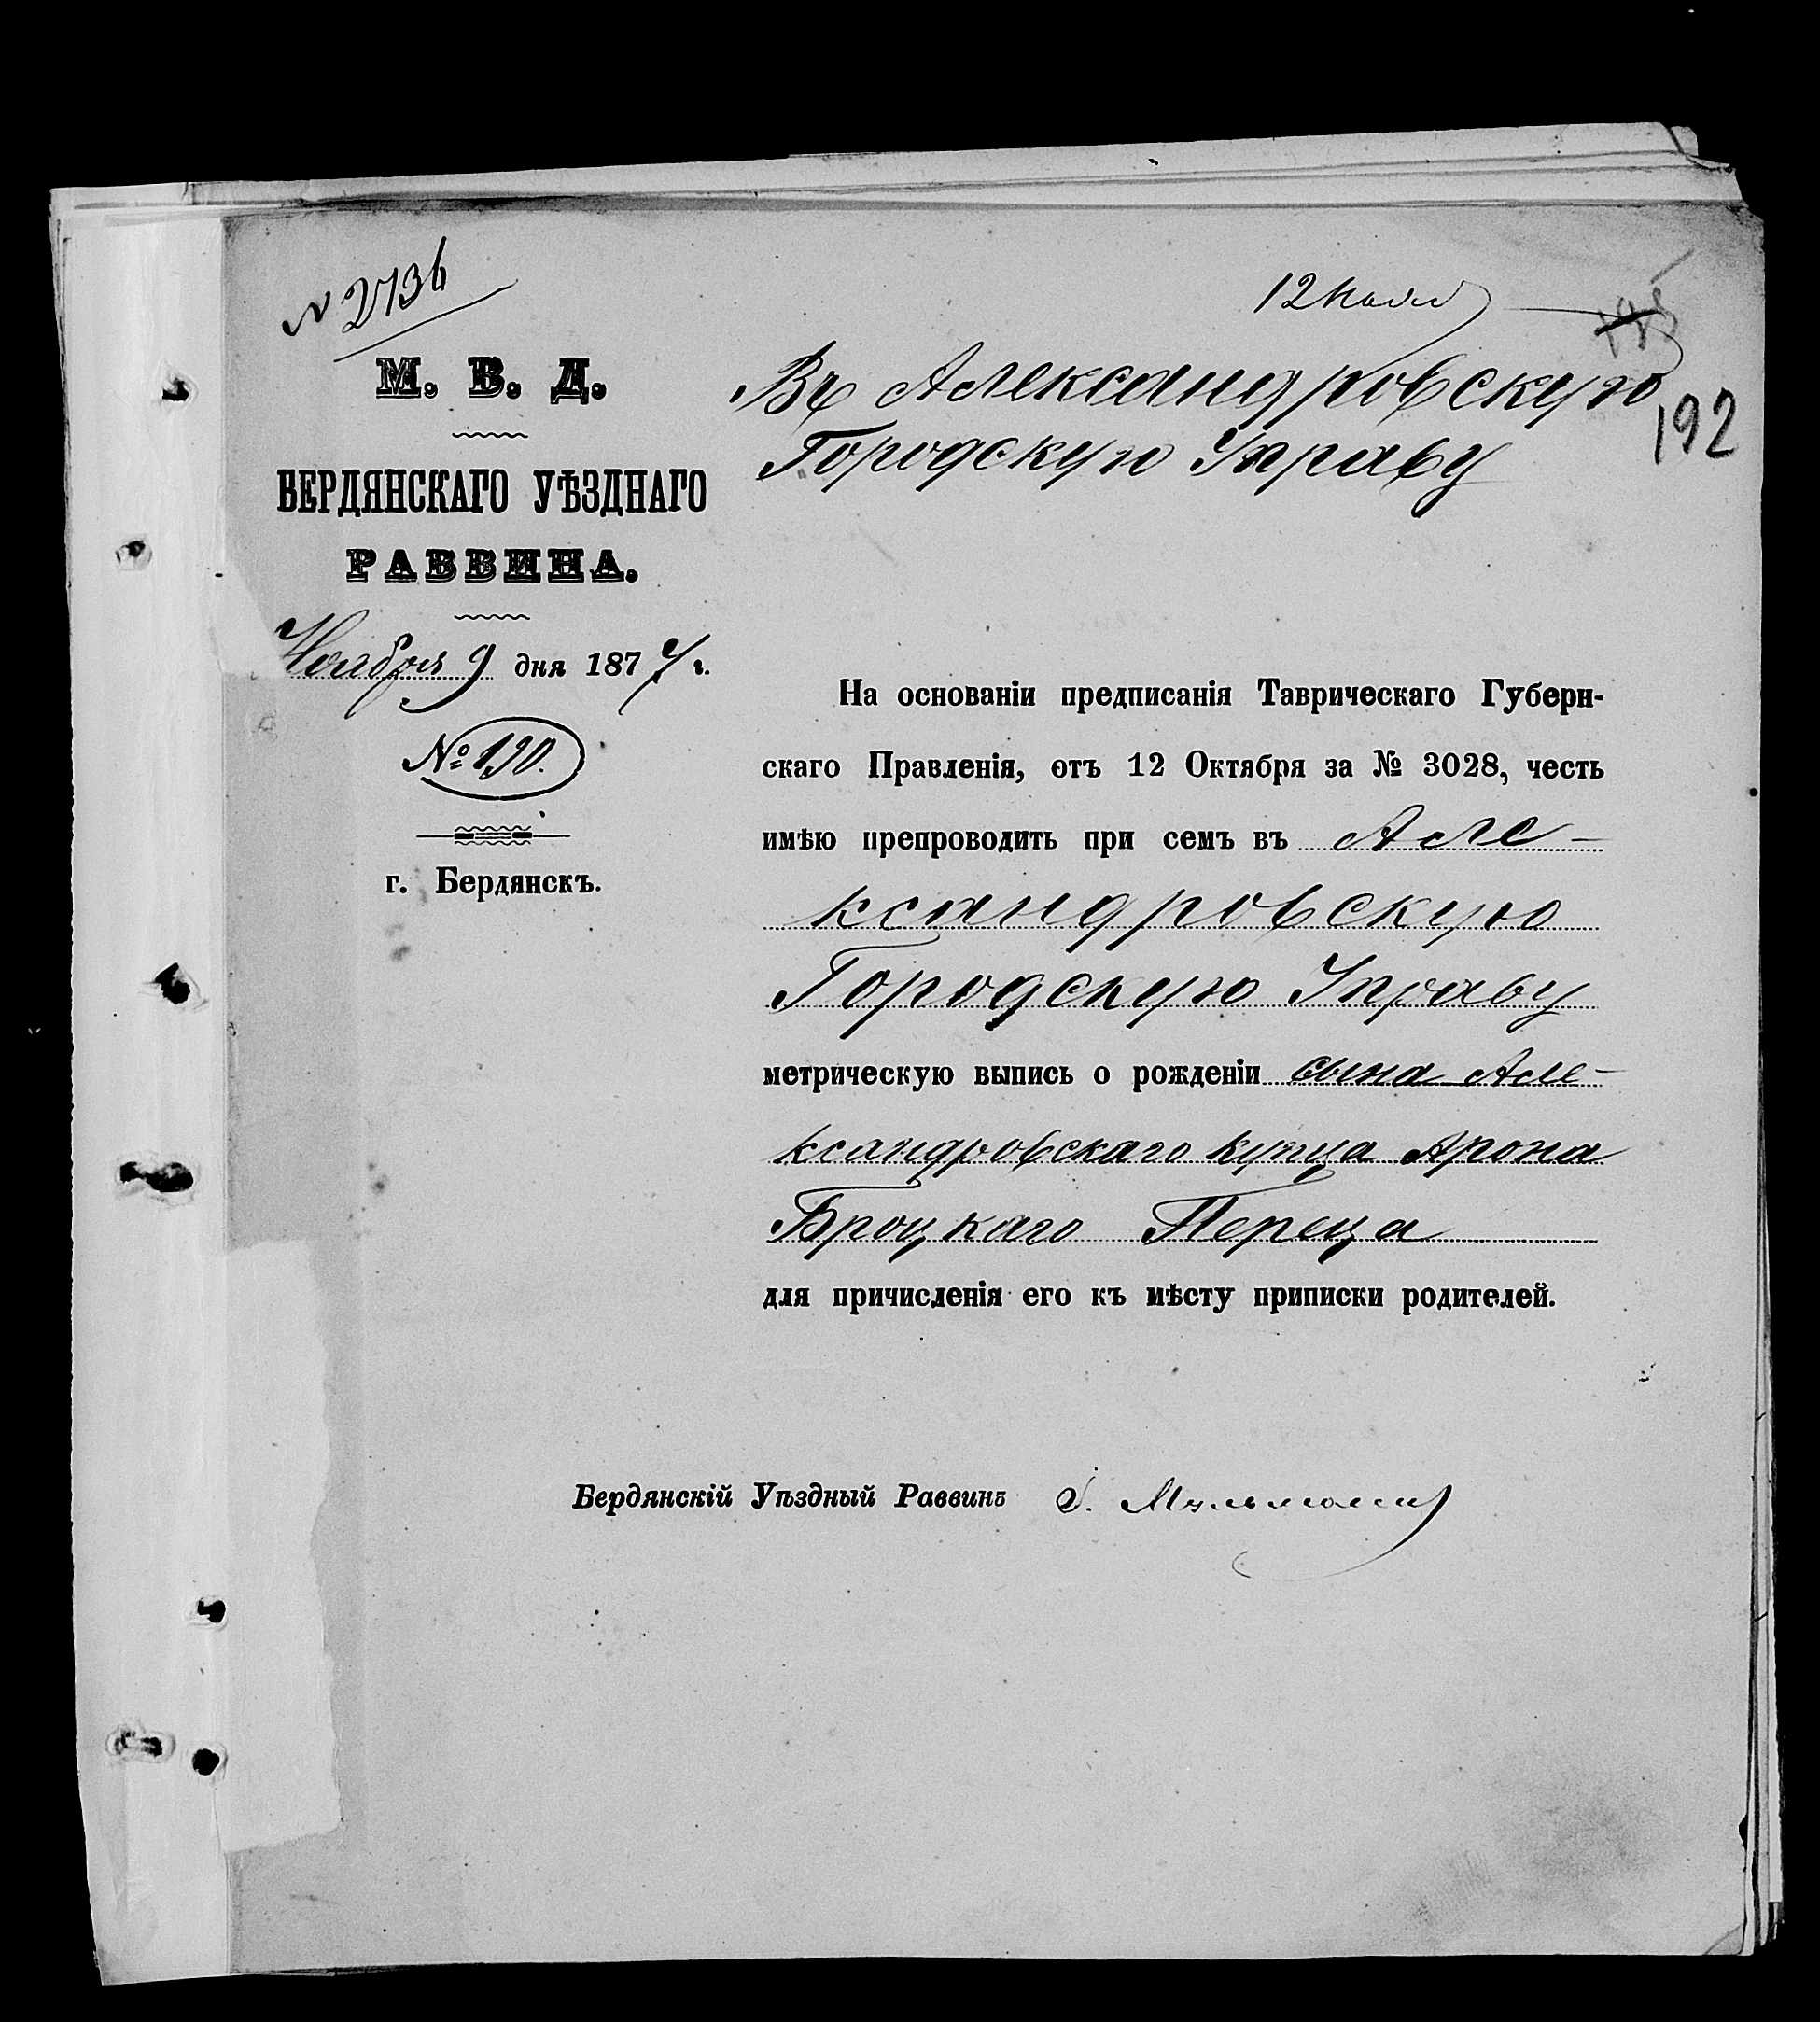 N 2736
12 Нояб
192
М. В. Д.
БЕРДЯНСКАГО УѢЗДНАГО
РАВВИНА.
Ноября 9 дня 1874 г.
№ 190.
г. Бердянскъ.
Въ Александровскую
Городскую Управу
На основаніи предписанія Таврическаго Губерн-
скаго Правленія, отъ 12 Октября за № 3028, честь
имѣю препроводить при семъ въ Але-
ксандровскую
Городскую Управу
метрическую выпись о рожденіи сына Але-
ксандровскаго купца Арона
Броцкаго Переца
для причисленія его къ мѣсту приписки родителей.
Бердянскій Уѣздный Раввинъ